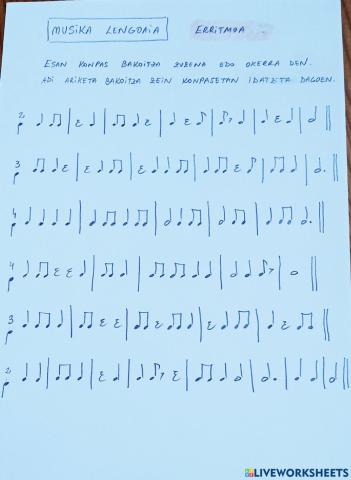 MUSIKA LENGOAIA ERRITMOA
ESAN KONPAS BAKOITZA ZUZENA EDO OKERRA DEN.
ADI ARIKETA BAKOITZA ZEIN KONPASETAN IDATZITA DAGOEN.
2
3
4
4
3
2
LIVEWORKSHEETS